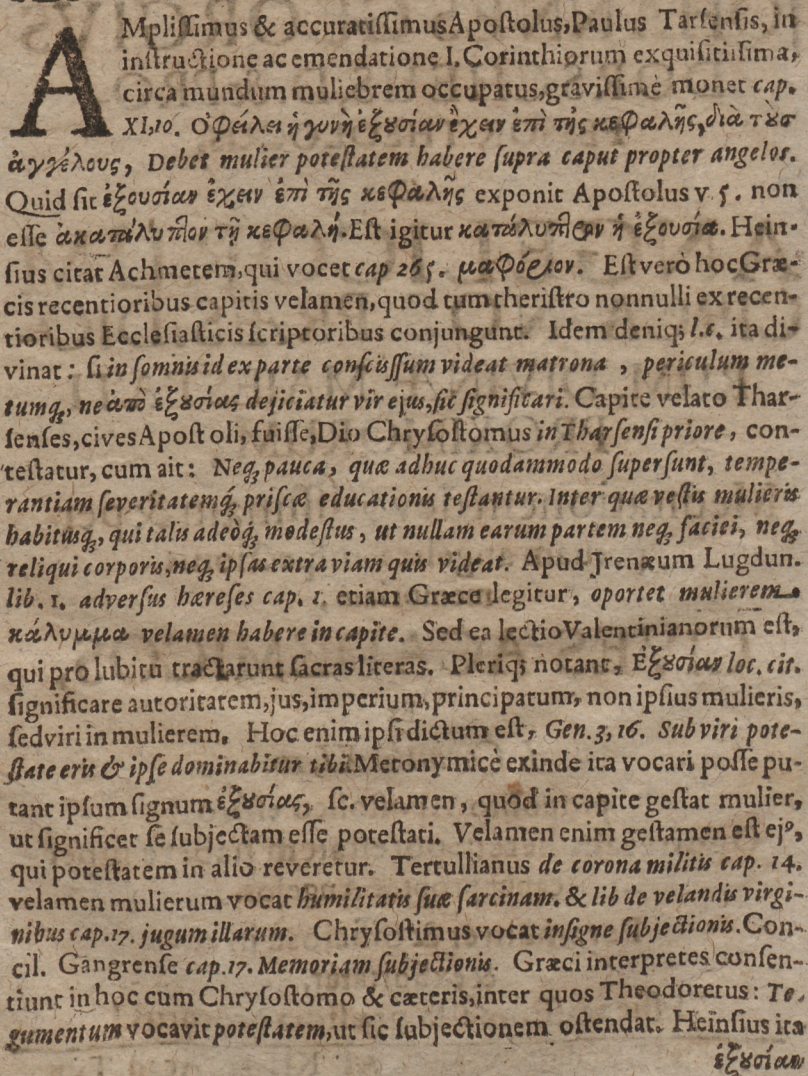 AMpliſſimus & accuratiſſimus Apoſtolus, Paulus Tarſenſis, in
inſtructione ac emendatione I. Corinthiorum exquiſitiſsima,
circa mundum muliebrem occupatus, graviſſimè monet cap.
XI, 10. Ὀφείλει ἡ γυνὴ ἐξουσίαν ἔχειν ἐπὶ τῆς κεφαλῆς, διὰ τὺσ
ἀγγέλους, Debet mulier poteſtatem habere ſupra caput propter angelos.
Quid ſit ἐξουσίαν ἔχειν ἐπὶ τῆς κεφαλῆς exponit Apoſtolus v 5. non
eſſe ἀκατάλυπτον τῇ κεφαλῇ. Eſt igitur κατάλυπτον ἡ ἐξουσία. Hein-
ſius citat Achmetem, qui vocet cap 265. μαφόριον. Eſt verò hoc Græ-
cis recentioribus capitis velamen, quod cum theriſtro nonnulli ex recen-
tioribus Eccleſiaſticis ſcriptoribus conjungunt. Idem deniq; l.c. ita di-
vinat: ſi in ſomnis id ex parte conſciſſum videat matrona, periculum me-
tumq;, ne ἀπὸ ἐξουσίας dejiciatur vir ejus, ſic ſignificari. Capite velato Thar-
ſenſes, cives Apoſt oli, fuiſſe, Dio Chryſoſtomus in Tharſenſi priore, con-
teſtatur, cum ait: Neq; pauca, quæ adhuc quodammodo ſuperſunt, tempe-
rantiam ſeveritatemq; priſcæ educationis teſtantur. Inter quæ veſtis mulieris
habitusq;, qui talis adeòq; modeſtus, ut nullam earum partem neq; faciei, neq;
reliqui corporis, neq; ipſas extra viam quis videat. Apud Jrenæum Lugdun.
lib. 1. adverſus hæreſes cap. 1. etiam Græce legitur, oportet mulierem
κάλυμμα velamen habere in capite. Sed ea lectio Valentinianorum eſt,
qui pro lubitu tractarunt ſacras literas. Pleriq; notant, Ἐξουσίαν loc. cit.
ſignificare autoritatem, jus, imperium, principatum, non ipſius mulieris,
ſed viri in mulierem. Hoc enim ipſi dictum eſt, Gen. 3, 16. Sub viri pote-
ſtate eris & ipſe dominabitur tibi. Metonymicè exinde ita vocari poſſe pu-
tant ipſum ſignum ἐξουσίας, ſc. velamen, quod in capite geſtat mulier,
ut ſignificet ſe ſubjectam eſſe poteſtati. Velamen enim geſtamen eſt ejꝰ,
qui poteſtatem in alio reveretur. Tertullianus de corona militis cap. 14.
velamen mulierum vocat humilitatis ſuæ ſarcinam. & lib de velandis virgi-
nibus cap. 17. jugum illarum. Chryſoſtimus vocat inſigne ſubjectionis. Con-
cil. Gangrenſe cap. 17. Memoriam ſubjectionis. Græci interpretes conſen-
tiunt in hoc cum Chryſoſtomo & cæteris, inter quos Theodoretus: Te-
gumentum vocavit poteſtatem, ut ſic ſubjectionem oſtendat. Heinſius ita
ἐξουσίαν